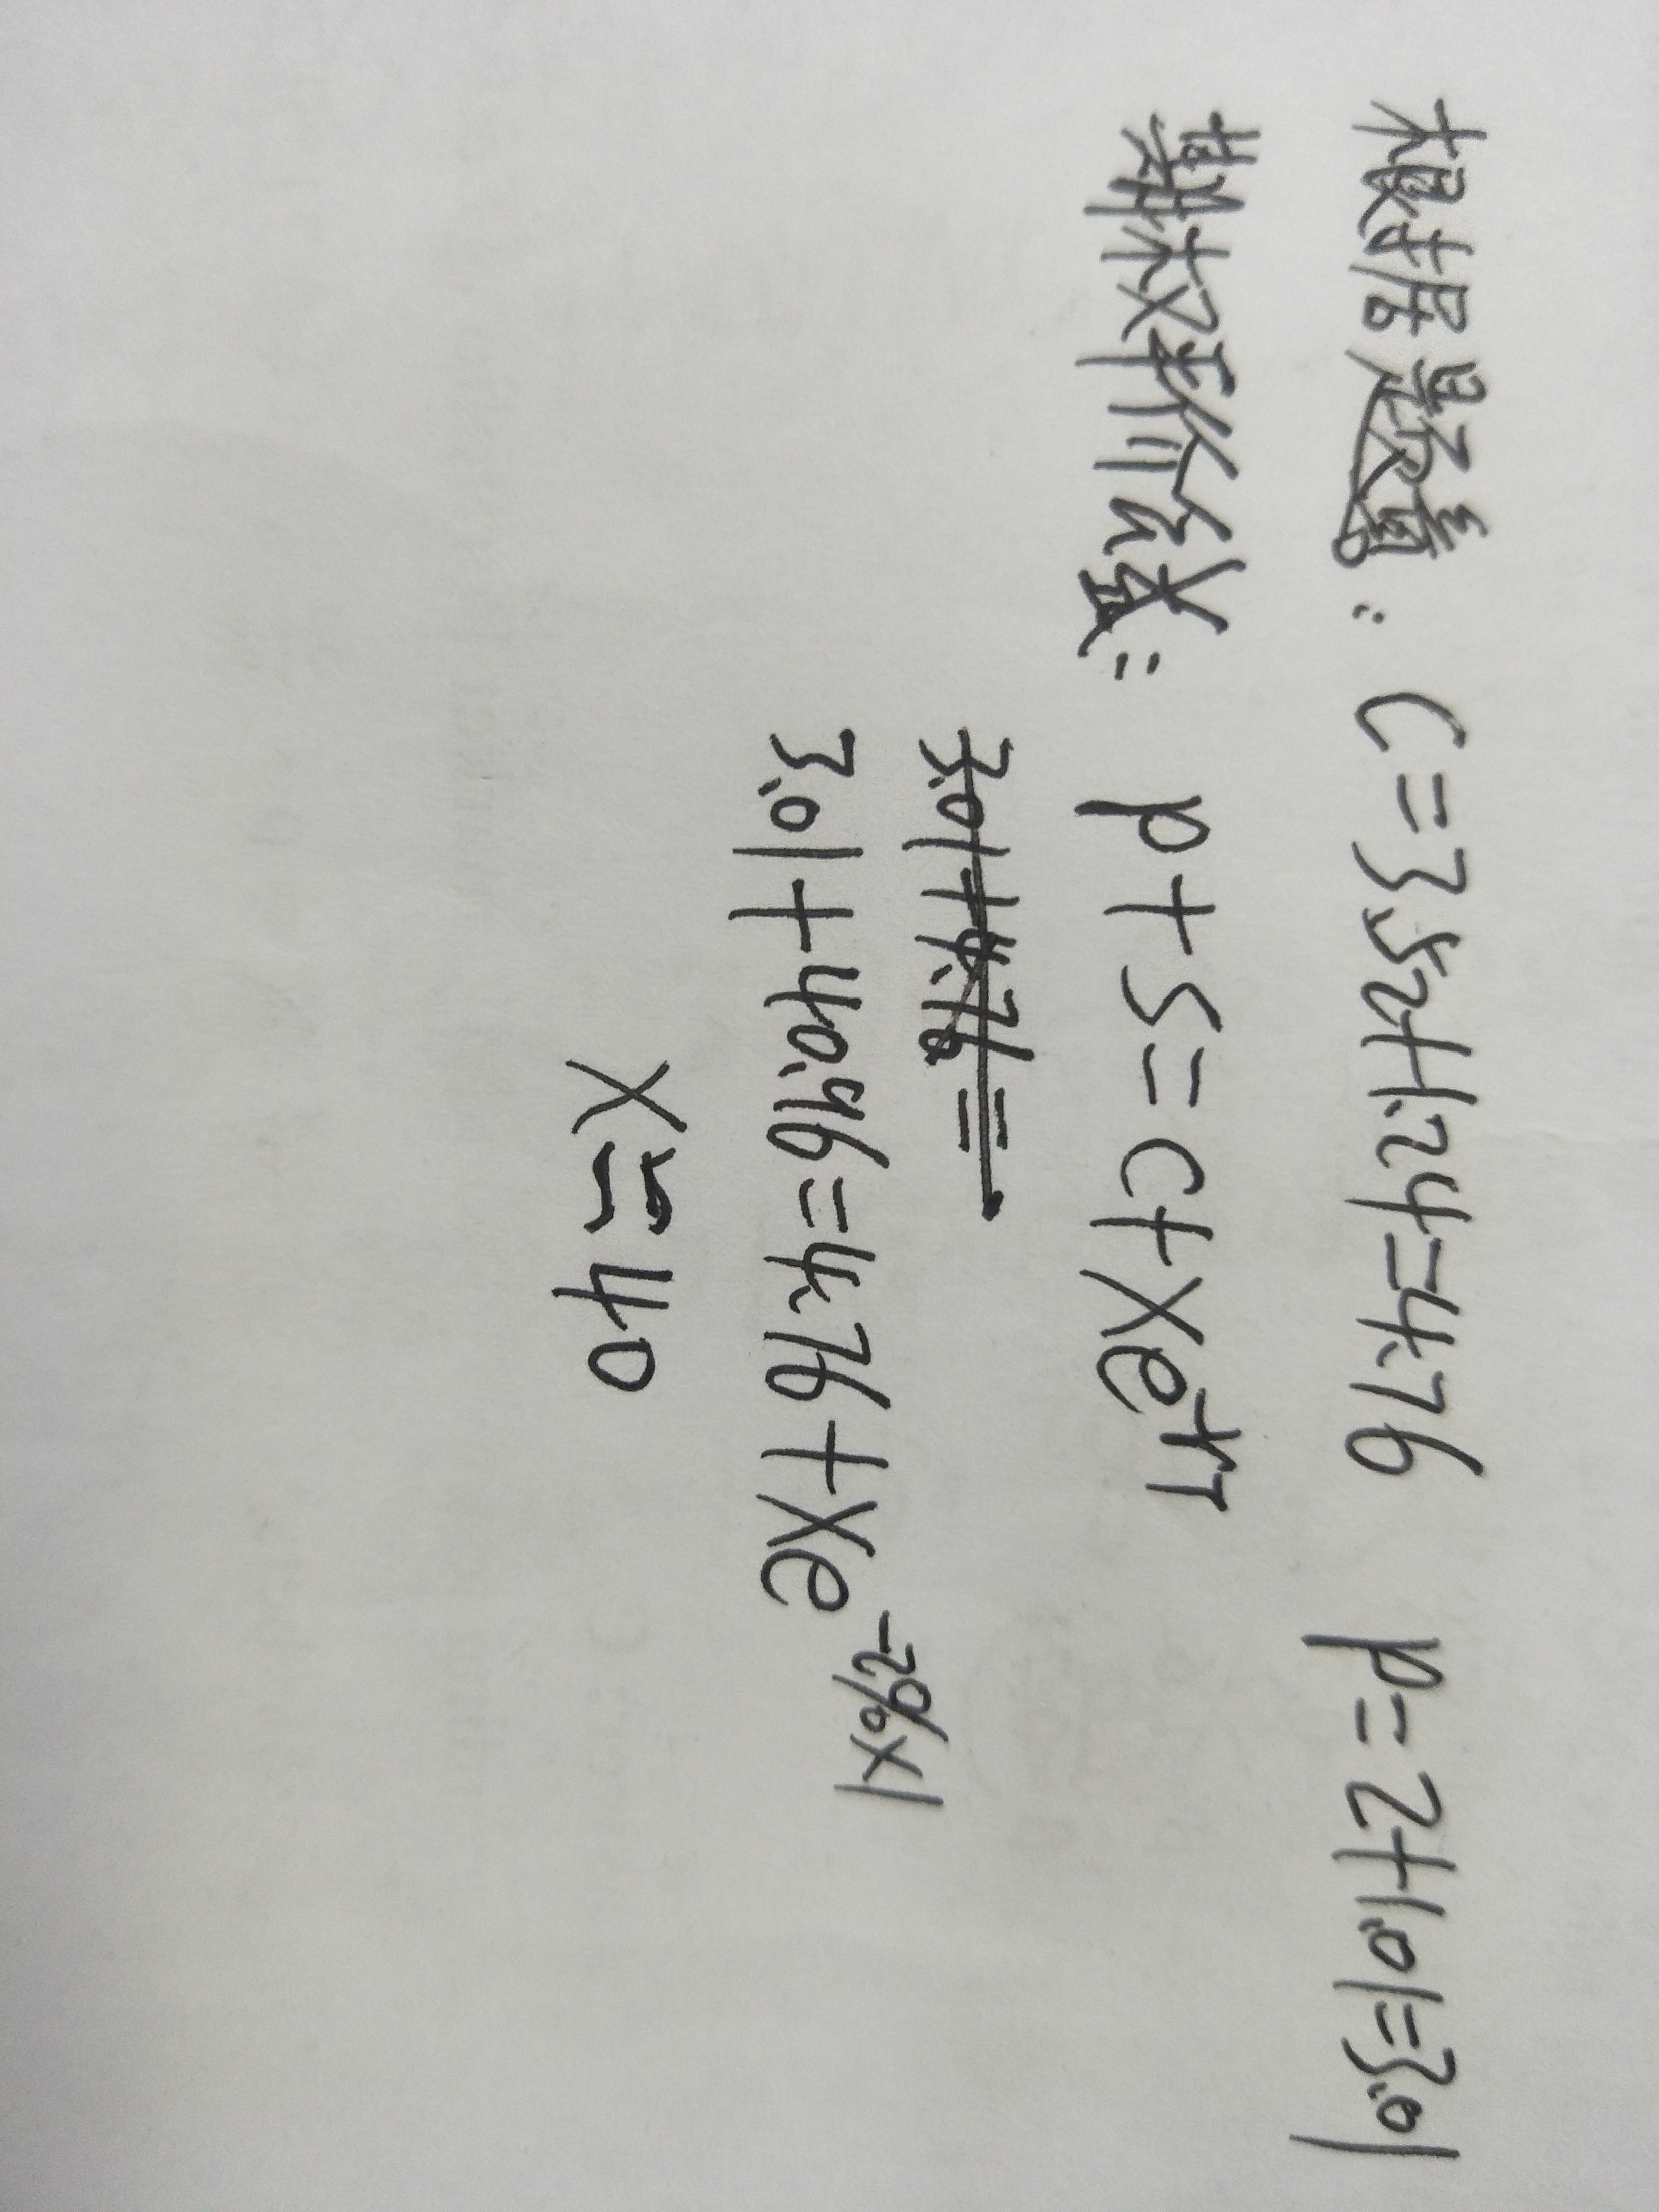 根据题意：C=3.52+1.24=4.76 p=2+1.01=3.01
期权平价公式：p+S=C+Xe^-rT
3.01+4.76=
3.01+40.96=4.76+Xe^-2%×1
X≈40